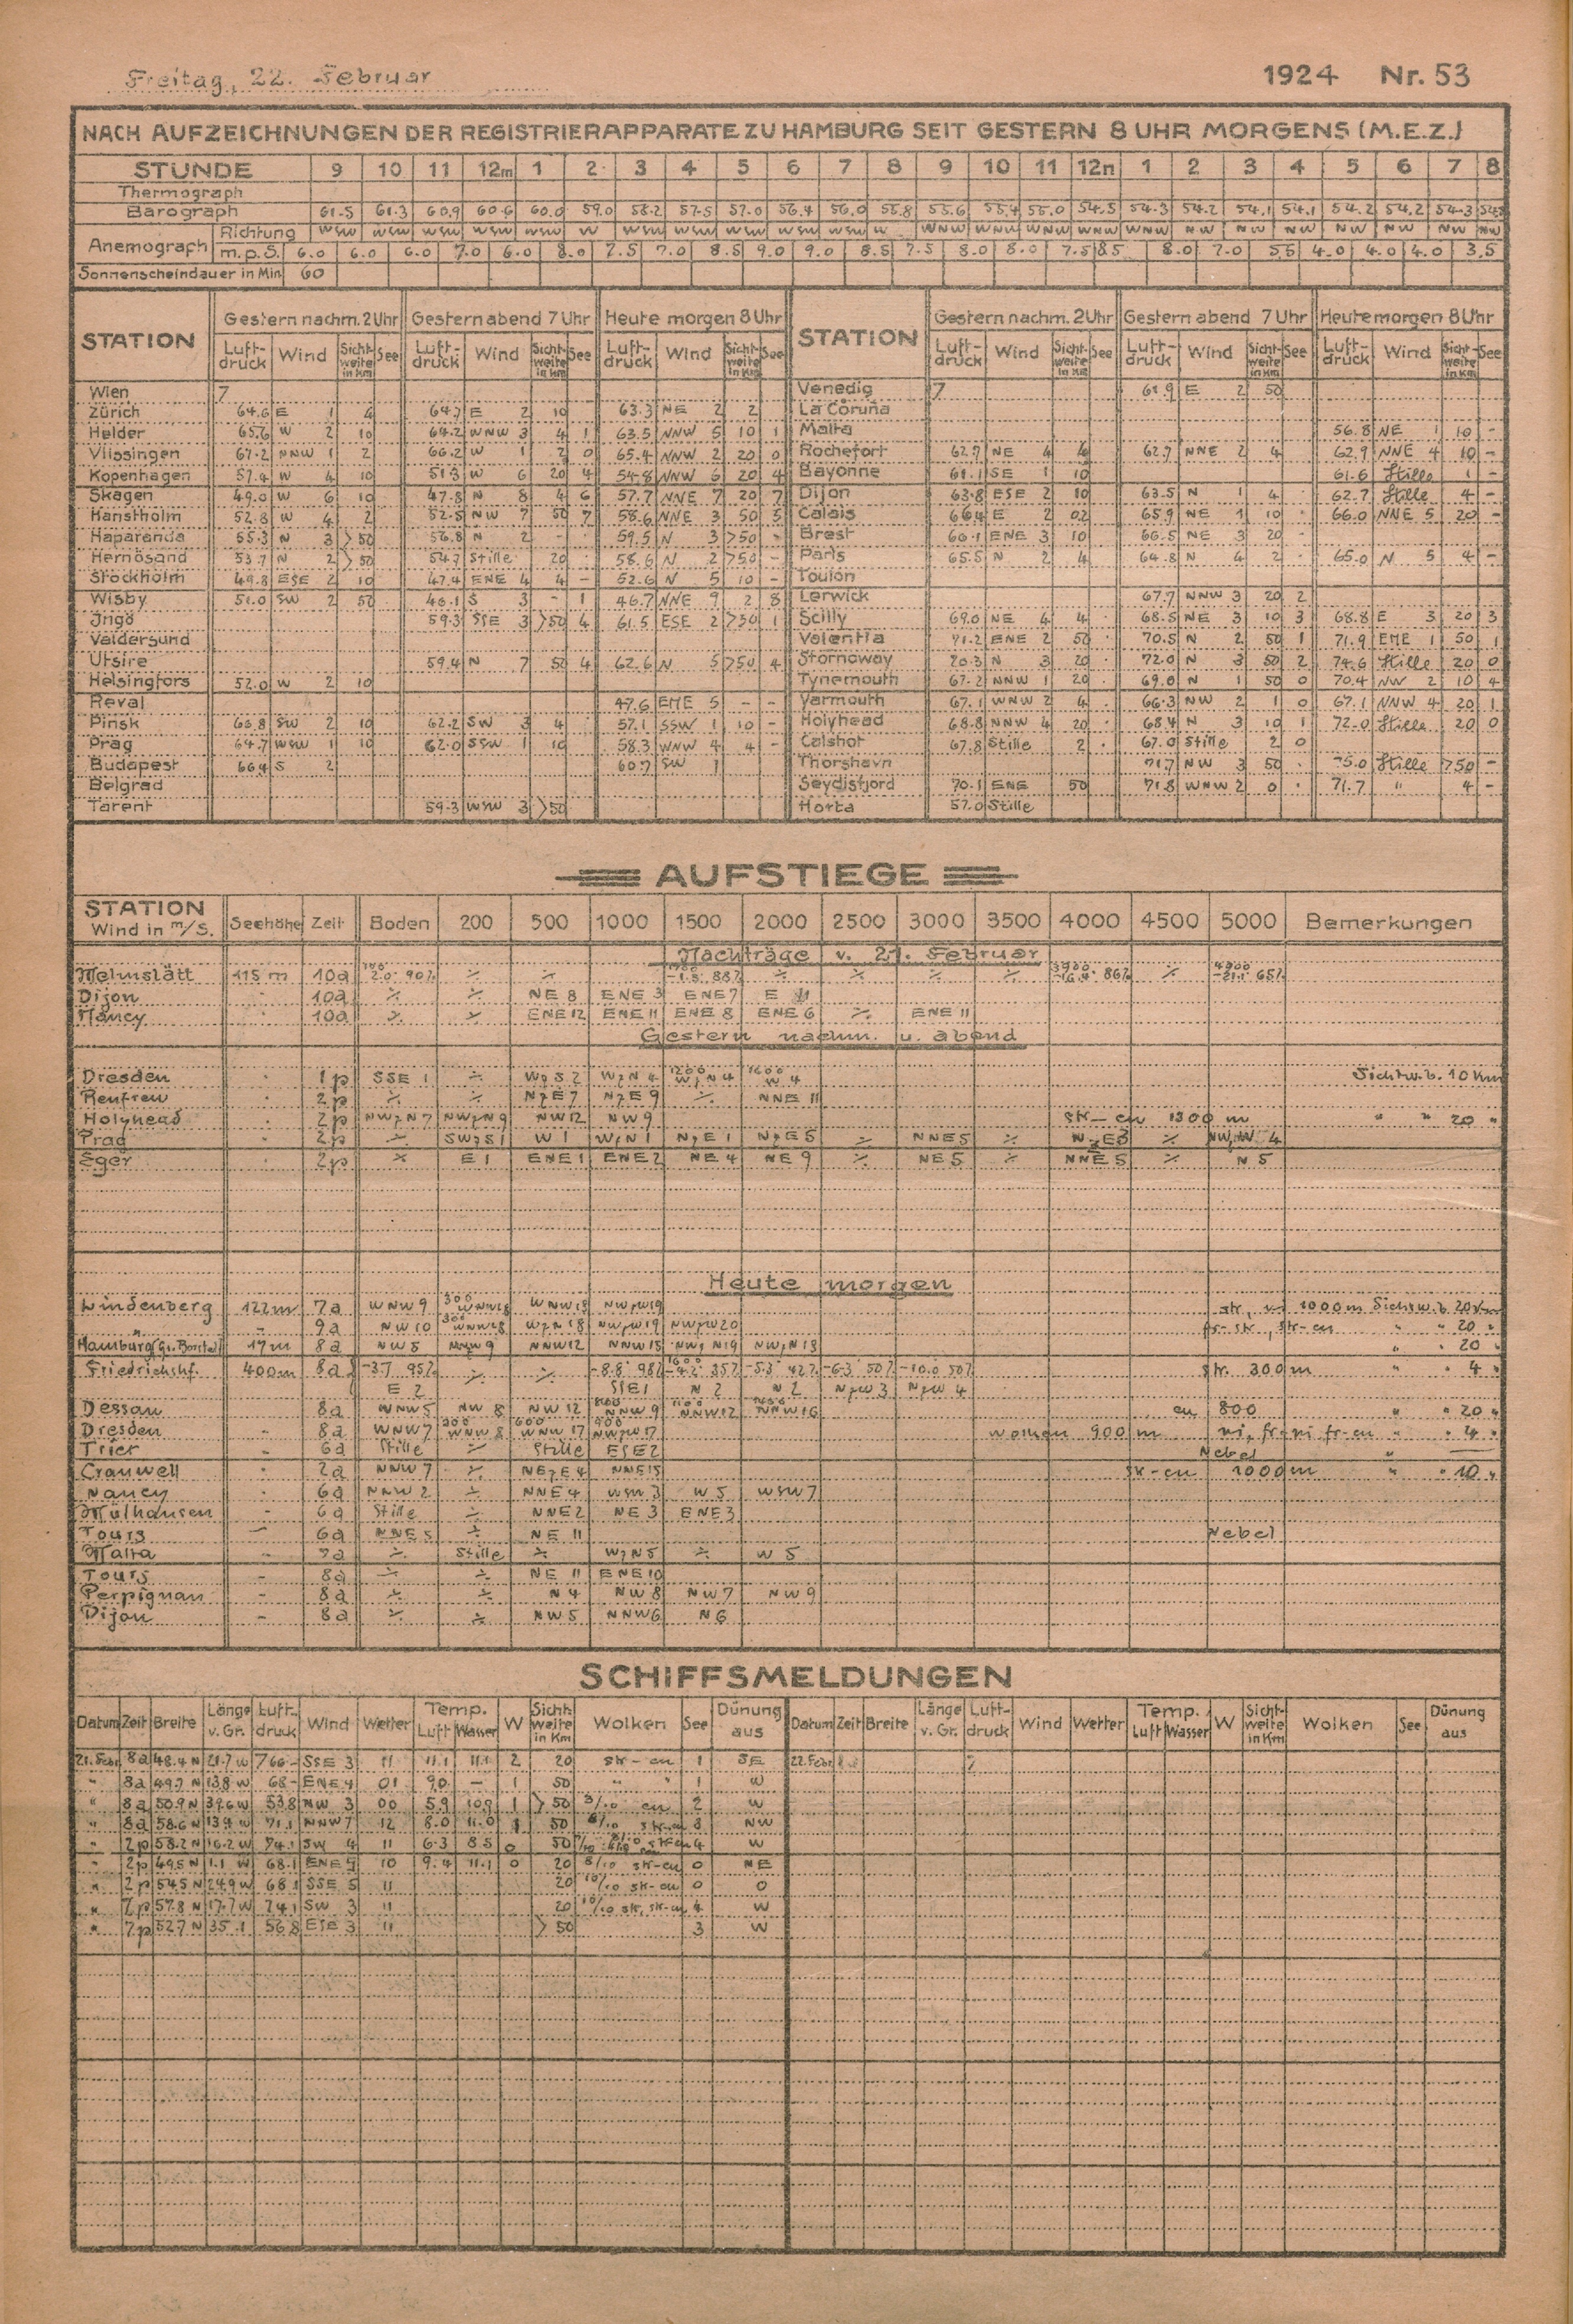 Freitag, 22. Februar 1924 Nr. 53
NACH AUFZEICHNUNGEN DER REGISTRIERAPPARATE ZU HAMBURG SEIT GESTERN 8 UHR MORGENS (M.E.Z.)
STUNDE 9 10 11 12m 1 2 3 4 5 6 7 8 9 10 11 12n 1 2 3 4 5 6 7 8
Thermograph
Barograph 61.5 61.3 60.9 60.6 60.0 59.0 58.2 57.5 57.0 56.4 56.0 55.8 55.6 55.4 55.0 54.5 54.3 54.2 54.1 54.1 54.2 54.2 54.3
Anemograph Richtung WSW WSW WSW WSW WSW W WSW WSW WSW WSW WSW W WNW WNW WNW WNW WNW NW NW NW NW NW NW NW
m.p.S. 6.0 6.0 6.0 7.0 6.0 8.0 7.5 7.0 8.5 9.0 9.0 8.5 7.5 8.0 8.0 7.5 8.5 8.0 7.0 5.5 4.0 4.0 4.0 3.5
Sonnenscheindauer in Min. 60
STATION Gestern nachm. 2 Uhr Gestern abend 7 Uhr Heute morgen 8 Uhr STATION Gestern nachm. 2 Uhr Gestern abend 7 Uhr Heute morgen 8 Uhr
Luft-druck Wind Sicht-weite in km See Luft-druck Wind Sicht-weite in km See Luft-druck Wind Sicht-weite in km See Luft-druck Wind Sicht-weite in km See Luft-druck Wind Sicht-weite in km See Luft-druck Wind Sicht-weite in km See
Wien 7 Venedig 7 61.9 E 2 50
Zürich 64.6 E 1 4 64.7 E 2 10 63.3 NE 2 2 La Coruña
Helder 65.6 W 2 10 64.2 WNW 3 4 1 63.5 NNW 5 10 1 Malta 56.8 NE 1 10 -
Vlissingen 67.2 NNW 1 2 66.2 W 1 2 0 65.4 NNW 2 20 0 Rochefort 62.7 NE 4 4 62.7 NNE 2 4 62.9 NNE 4 10 -
Kopenhagen 57.4 W 4 10 51.3 W 6 20 4 54.8 NNW 6 20 4 Bayonne 61.1 SE 1 10 61.6 Stille 1 -
Skagen 49.0 W 6 10 47.8 N 8 4 6 57.7 NNE 7 20 7 Dijon 63.8 ESE 2 10 63.5 N 1 4 62.7 Stille 4 -
Hanstholm 52.8 W 4 2 52.5 NW 7 50 7 58.6 NNE 3 50 5 Calais 66.4 E 2 02 65.9 NE 1 10 66.0 NNE 5 20 -
Haparanda 55.3 N 3 >50 56.8 N 2 - 59.5 N 3 >50 - Brest 66.1 ENE 3 10 66.5 NE 3 20 -
Hernösand 53.7 N 2 >50 54.7 Stille 20 58.6 N 2 >50 - Paris 65.5 N 2 4 64.8 N 4 2 65.0 N 5 4 -
Stockholm 49.8 ESE 2 10 47.4 ENE 4 4 - 52.6 N 5 10 - Toulon
Wisby 51.0 SW 2 50 46.1 S 3 - 1 46.7 NNE 9 2 8 Lerwick 67.7 NNW 3 20 2
Ingö 59.3 SSE 3 >50 4 61.5 ESE 2 >50 1 Scilly 69.0 NE 4 4 68.5 NE 3 10 3 68.8 E 3 20 3
Valdersund Valentia 71.2 ENE 2 50 70.5 N 2 50 1 71.9 ENE 1 50 1
Utsire 59.4 N 7 50 4 62.6 N 5 >50 4 Stornoway 70.3 N 3 20 72.0 N 3 50 2 74.6 Stille 20 0
Helsingfors 52.0 W 2 10 Tynemouth 67.2 NNW 1 20 69.0 N 1 50 0 70.4 NW 2 10 4
Reval 47.6 ENE 5 - - Yarmouth 67.1 WNW 2 4 66.3 NW 2 1 0 67.1 NNW 4 20 1
Pinsk 66.8 SW 2 10 62.2 SW 3 4 57.1 SSW 1 10 - Holyhead 68.8 NNW 4 20 68.4 N 3 10 1 72.0 Stille 20 0
Prag 64.7 WSW 1 10 62.0 SSW 1 10 58.3 WNW 4 4 - Calshot 67.8 Stille 2 67.0 Stille 2 0
Budapest 66.4 S 2 60.7 SW 1 Thorshavn 71.7 NW 3 50 75.0 Stille >50 -
Belgrad Seydisfjord 70.1 ENE 50 71.8 WNW 2 0 71.7 " 4 -
Tarent 59.3 WSW 3 >50 Horta 57.0 Stille
AUFSTIEGE
STATION Wind in m/s. Seehöhe Zeit Boden 200 500 1000 1500 2000 2500 3000 3500 4000 4500 5000 Bemerkungen
Nachträge v. 21. Februar
Melmslätt 115 m 10a
Dijon 10a NE 8 ENE 3 ENE 7 E 11
Nancy 10a ENE 12 ENE 11 ENE 8 ENE 6 ENE 11
Gestern nachm. u. abend
Dresden 1p SSE 1 WzS 2 WzN 4 1200 WzN 4 1600 W 4 Sichtw. b. 10 km
Renfrew 2p NzE 7 NzE 9 NNE 11
Holyhead 2p NWzN 7 NWzN 9 NW 12 NW 9 str-cu 1300 m " " 20 "
Prag 2p SWzS 1 W 1 WzN 1 NzE 1 NzE 5 NNE 5 NzE 3 NWzW 4
Eger 2p E 1 ENE 1 ENE 2 NE 4 NE 9 NE 5 NNE 5 N 5
Heute morgen
Lindenberg 122 m 7a WNW 9 300 WNW 18 WNW 18 NWzW 19 str, ni 1000 m Sichtw. b. 20 km
" 9a NW 10 300 WNW 18 WzN 18 NWzW 19 NWzW 20 fr-str, str-cu " " 20 "
Hamburg (Gr. Borstel) 17 m 8a NW 5 NNW 9 NNW 12 NNW 15 NWzN 19 NWzN 13 " " 20 "
Friedrichshf. 400 m 8a -3.7 95% -8.8° 98% 1600 -4.2° 35% -5.3° 42% -6.3 50% -10.0 50% str. 300 m " 4 "
E 2 SSE 1 N 2 N 2 NzW 3 NzW 4
Dessau 8a WNW 5 NW 8 NW 12 NNW 9 NNW 12 NNW 16 cu 800 " " 20 "
Dresden 8a WNW 7 300 WNW 8 600 WNW 17 900 NWzW 17 Wolken 900 m ni, fr-ni fr-cu " " 4 "
Trier 6a Stille Stille ESE 2 Nebel "
Cranwell 2a NNW 7 NEzE 4 NNE 15 str-cu 1000 m " " 10 "
Nancy 6a NNW 2 NNE 4 WSW 3 W 5 WSW 7
Mülhausen 6a Stille NNE 2 NE 3 ENE 3
Tours 6a NNE 5 NE 11 Nebel
Malta 7a Stille WzN 5 W 5
Tours 8a NE 11 ENE 10
Perpignan 8a N 4 NW 8 NW 7 NW 9
Dijon 8a NW 5 NNW 6 N 6
SCHIFFSMELDUNGEN
Datum Zeit Breite Länge v. Gr. Luft-druck Wind Wetter Temp. Luft Wasser W Sicht-weite in Km Wolken See Dünung aus Datum Zeit Breite Länge v. Gr. Luft-druck Wind Wetter Temp. Luft Wasser W Sicht-weite in Km Wolken See Dünung aus
21. Febr. 8a 48.4 N 21.7 W 766- SSE 3 11 11.1 11.1 2 20 str-cu 1 SE 22. Febr. 7
" 8a 49.7 N 13.8 W 68- ENE 4 01 9.0 - 1 50 " " 1 W
" 8a 50.9 N 39.6 W 53.8 NW 3 00 5.9 10.9 1 >50 3/10 cu 2 W
" 8a 58.6 N 13.4 W 71.1 NNW 7 12 8.0 11.0 1 50 8/10 str-cu 3 NW
" 2p 58.2 N 16.2 W 74.1 SW 4 11 6.3 8.5 0 50 str-cu 4 W
" 2p 49.5 N 1.1 W 68.1 ENE 5 10 9.4 11.1 0 20 8/10 str-cu 0 NE
" 2p 54.5 N 24.9 W 68.1 SSE 5 11 20 10/10 str-cu 0 0
" 7p 57.8 N 17.7 W 74.1 SW 3 11 20 10/10 str, str-cu 4 W
" 7p 52.7 N 35.1 56.8 ESE 3 11 >50 3 W